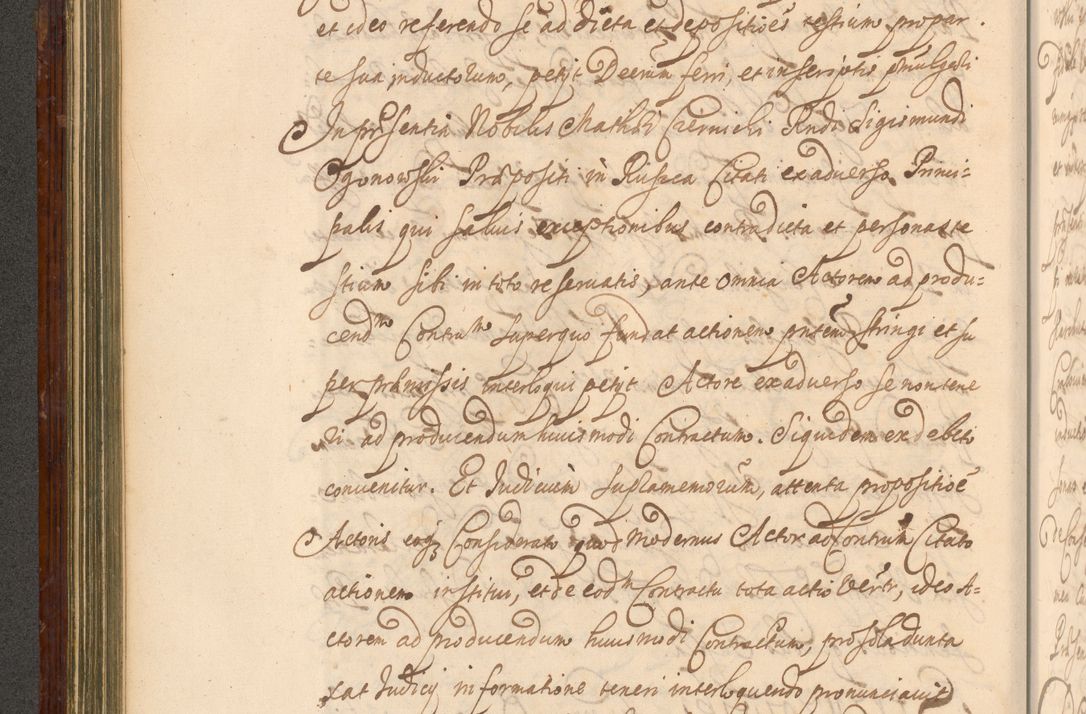 et ideo referendo se ad dicta et depositiões testium propar.
te sua inductorum, petijt Decrum ferri et in scriptis pmulgari
In prsentia Nobilis Mathiæ Czernicki Rndi Sigismundi
Ogonowski Præpositi in Rusica Citati ex adverso Princi=
palis qui salvis exceptionibus contradicta et personas te
stium sibi in toto reservatis, ante omnia Actorem ad produ=
cendm Contractm superquo fundat actionem pntem stringi et su
per præmissis interloqui petijt Actore ex adverso se non tene
ri ad producendum huiusmodi Contractum. Siquidem ex debito
convenitur. Et Judicium suplamemoratum, attenta propositioē
Actoris eoq; Considerato quod Modernus Actor ad Contrum Citato
actionem instituit, et de eodm Contractu tota actio vertr, ideo A=
ctorem ad producendum huiusmodi Contractum, pro sola dunta
xat Judicij informatione teneri interloquendo pronunciavit